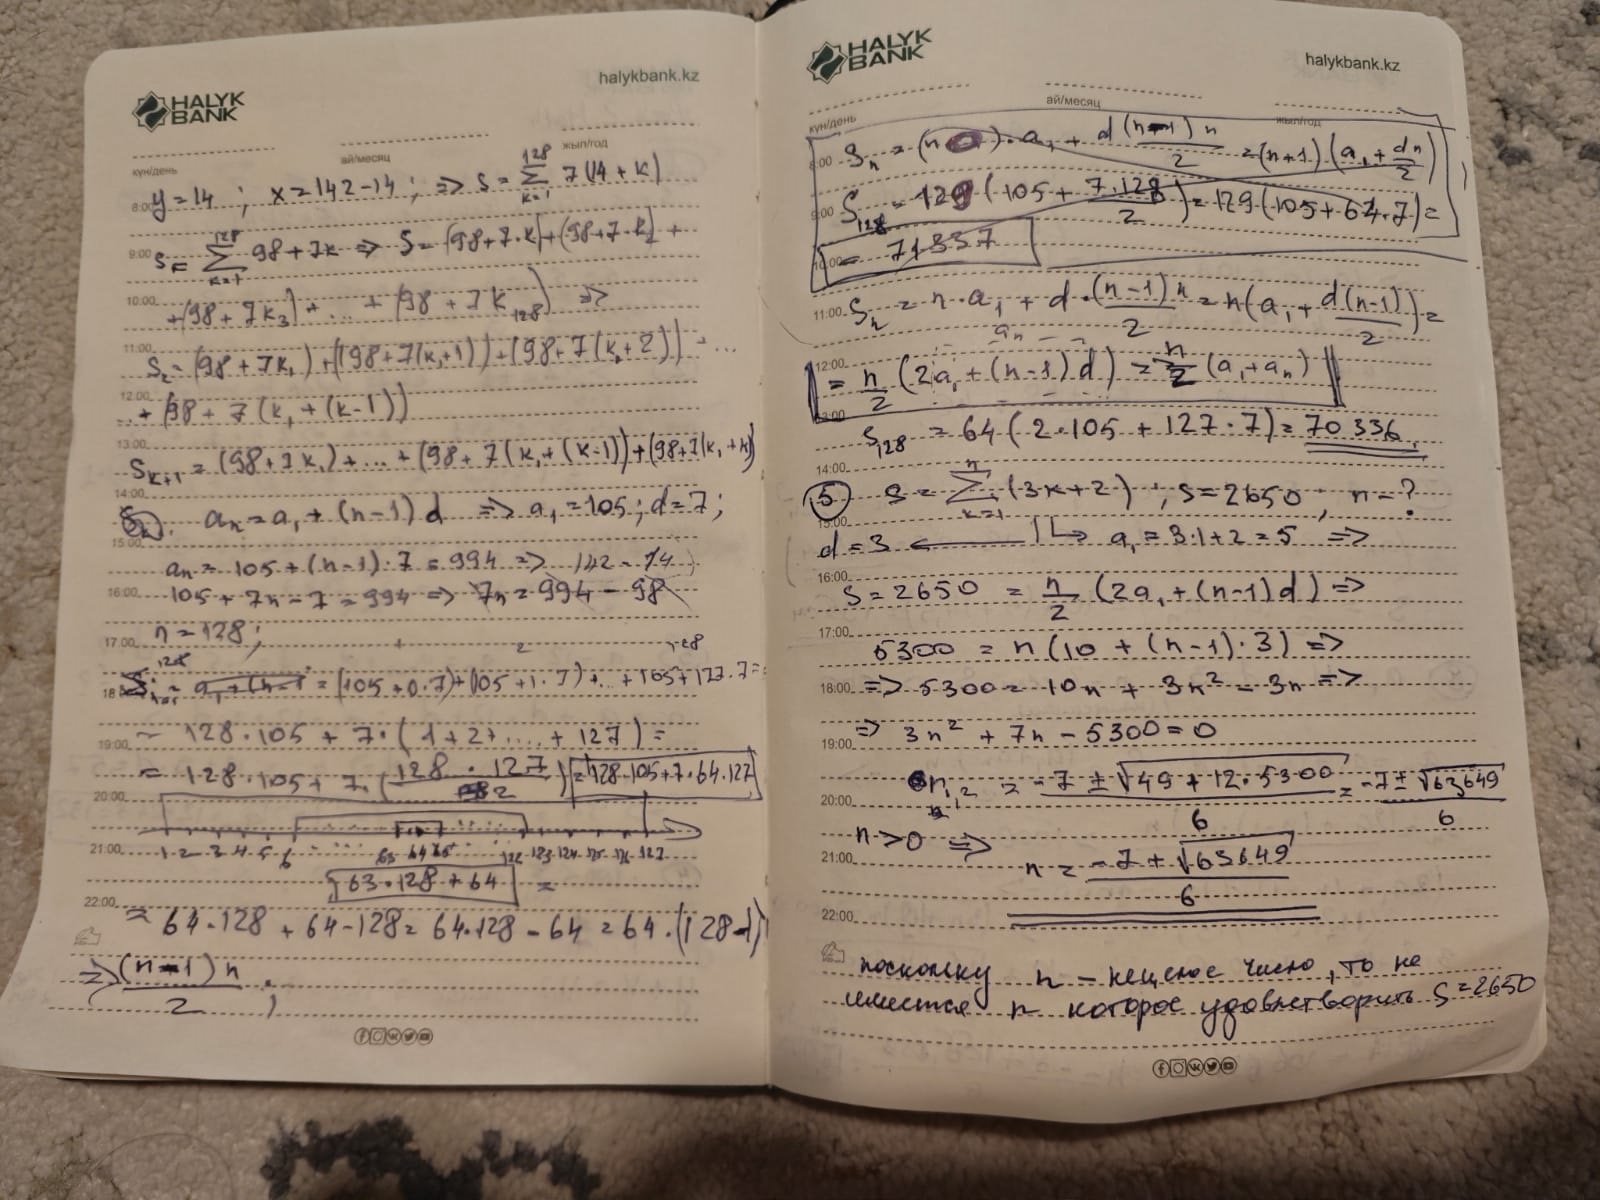 HALYK
BANK
halykbank.kz
күн/день
ай/месяц
жыл/год
y = 14 ; x = 142 - 14 ; => S = Σ_{k=1}^{128} 7(14 + k)
8:00
S = Σ_{k=1}^{128} 98 + 7k => S = (98 + 7·k) + (98 + 7·k)_2 +
9:00
+ (98 + 7k_3) + ... + (98 + 7k_128) =>
10:00
S_k = (98 + 7k_1) + (98 + 7(k_1+1)) + (98 + 7(k_1+2)) + ...
11:00
... + (98 + 7(k_1 + (k-1))
12:00
S_{k+1} = (98 + 7k_1) + ... + (98 + 7(k_1 + (k-1)) + (98 + 7(k_1 + k)
13:00
a_n = a_1 + (n-1) d => a_1 = 105 ; d = 7 ;
14:00
a_n = 105 + (n-1) · 7 = 994 => 142 - 14
15:00
105 + 7n - 7 = 994 => 7n = 994 - 98
16:00
n = 128 ;
17:00
= a_1 + (n-1 = (105 + 0·7) + (105 + 1·7) + ... + 105 + 127·7 =
18:00
= 128·105 + 7·(1 + 2 + .... + 127) =
19:00
= 128·105 + 7·(128·127/2) = 128·105 + 7·64·127
20:00
1 2 3 4 5 6 63 64 65 122 123 124 125 126 127
21:00
63·128 + 64 =
22:00
= 64·128 + 64 - 128 = 64·128 - 64 = 64·(128-1)
=> (n-1)n/2 ;
HALYK
BANK
halykbank.kz
күн/день
ай/месяц
жыл/год
8:00 S_n = (n )·a_1 + d(n-1)n/2 = (n+1)(a_1 + dn/2)
9:00 S_128 = 129(105 + 7·128/2) = 129(105 + 64·7) =
10:00 = 71337
11:00 S_n = n·a_1 + d·(n-1)n/2 = n(a_1 + d(n-1)/2) =
a_n
12:00 = n/2 (2a_1 + (n-1)d) = n/2 (a_1 + a_n)
13:00
S_128 = 64(2·105 + 127·7) = 70336
14:00
5 S = Σ_{k=1}^{n} (3k+2) ; S = 2650 ; n = ?
15:00
d = 3 a_1 = 3·1 + 2 = 5 =>
16:00
S = 2650 = n/2 (2a_1 + (n-1)d) =>
17:00
5300 = n(10 + (n-1)·3) =>
18:00 => 5300 = 10n + 3n² - 3n =>
19:00 => 3n² + 7n - 5300 = 0
20:00 n_{1,2} = -7 ± √(49 + 12·5300)/6 = -7 ± √63649/6
n > 0 =>
21:00 n = -7 + √63649/6
22:00
поскольку n - нецелое число, то не
имеется n которое удовлетворить S = 2650